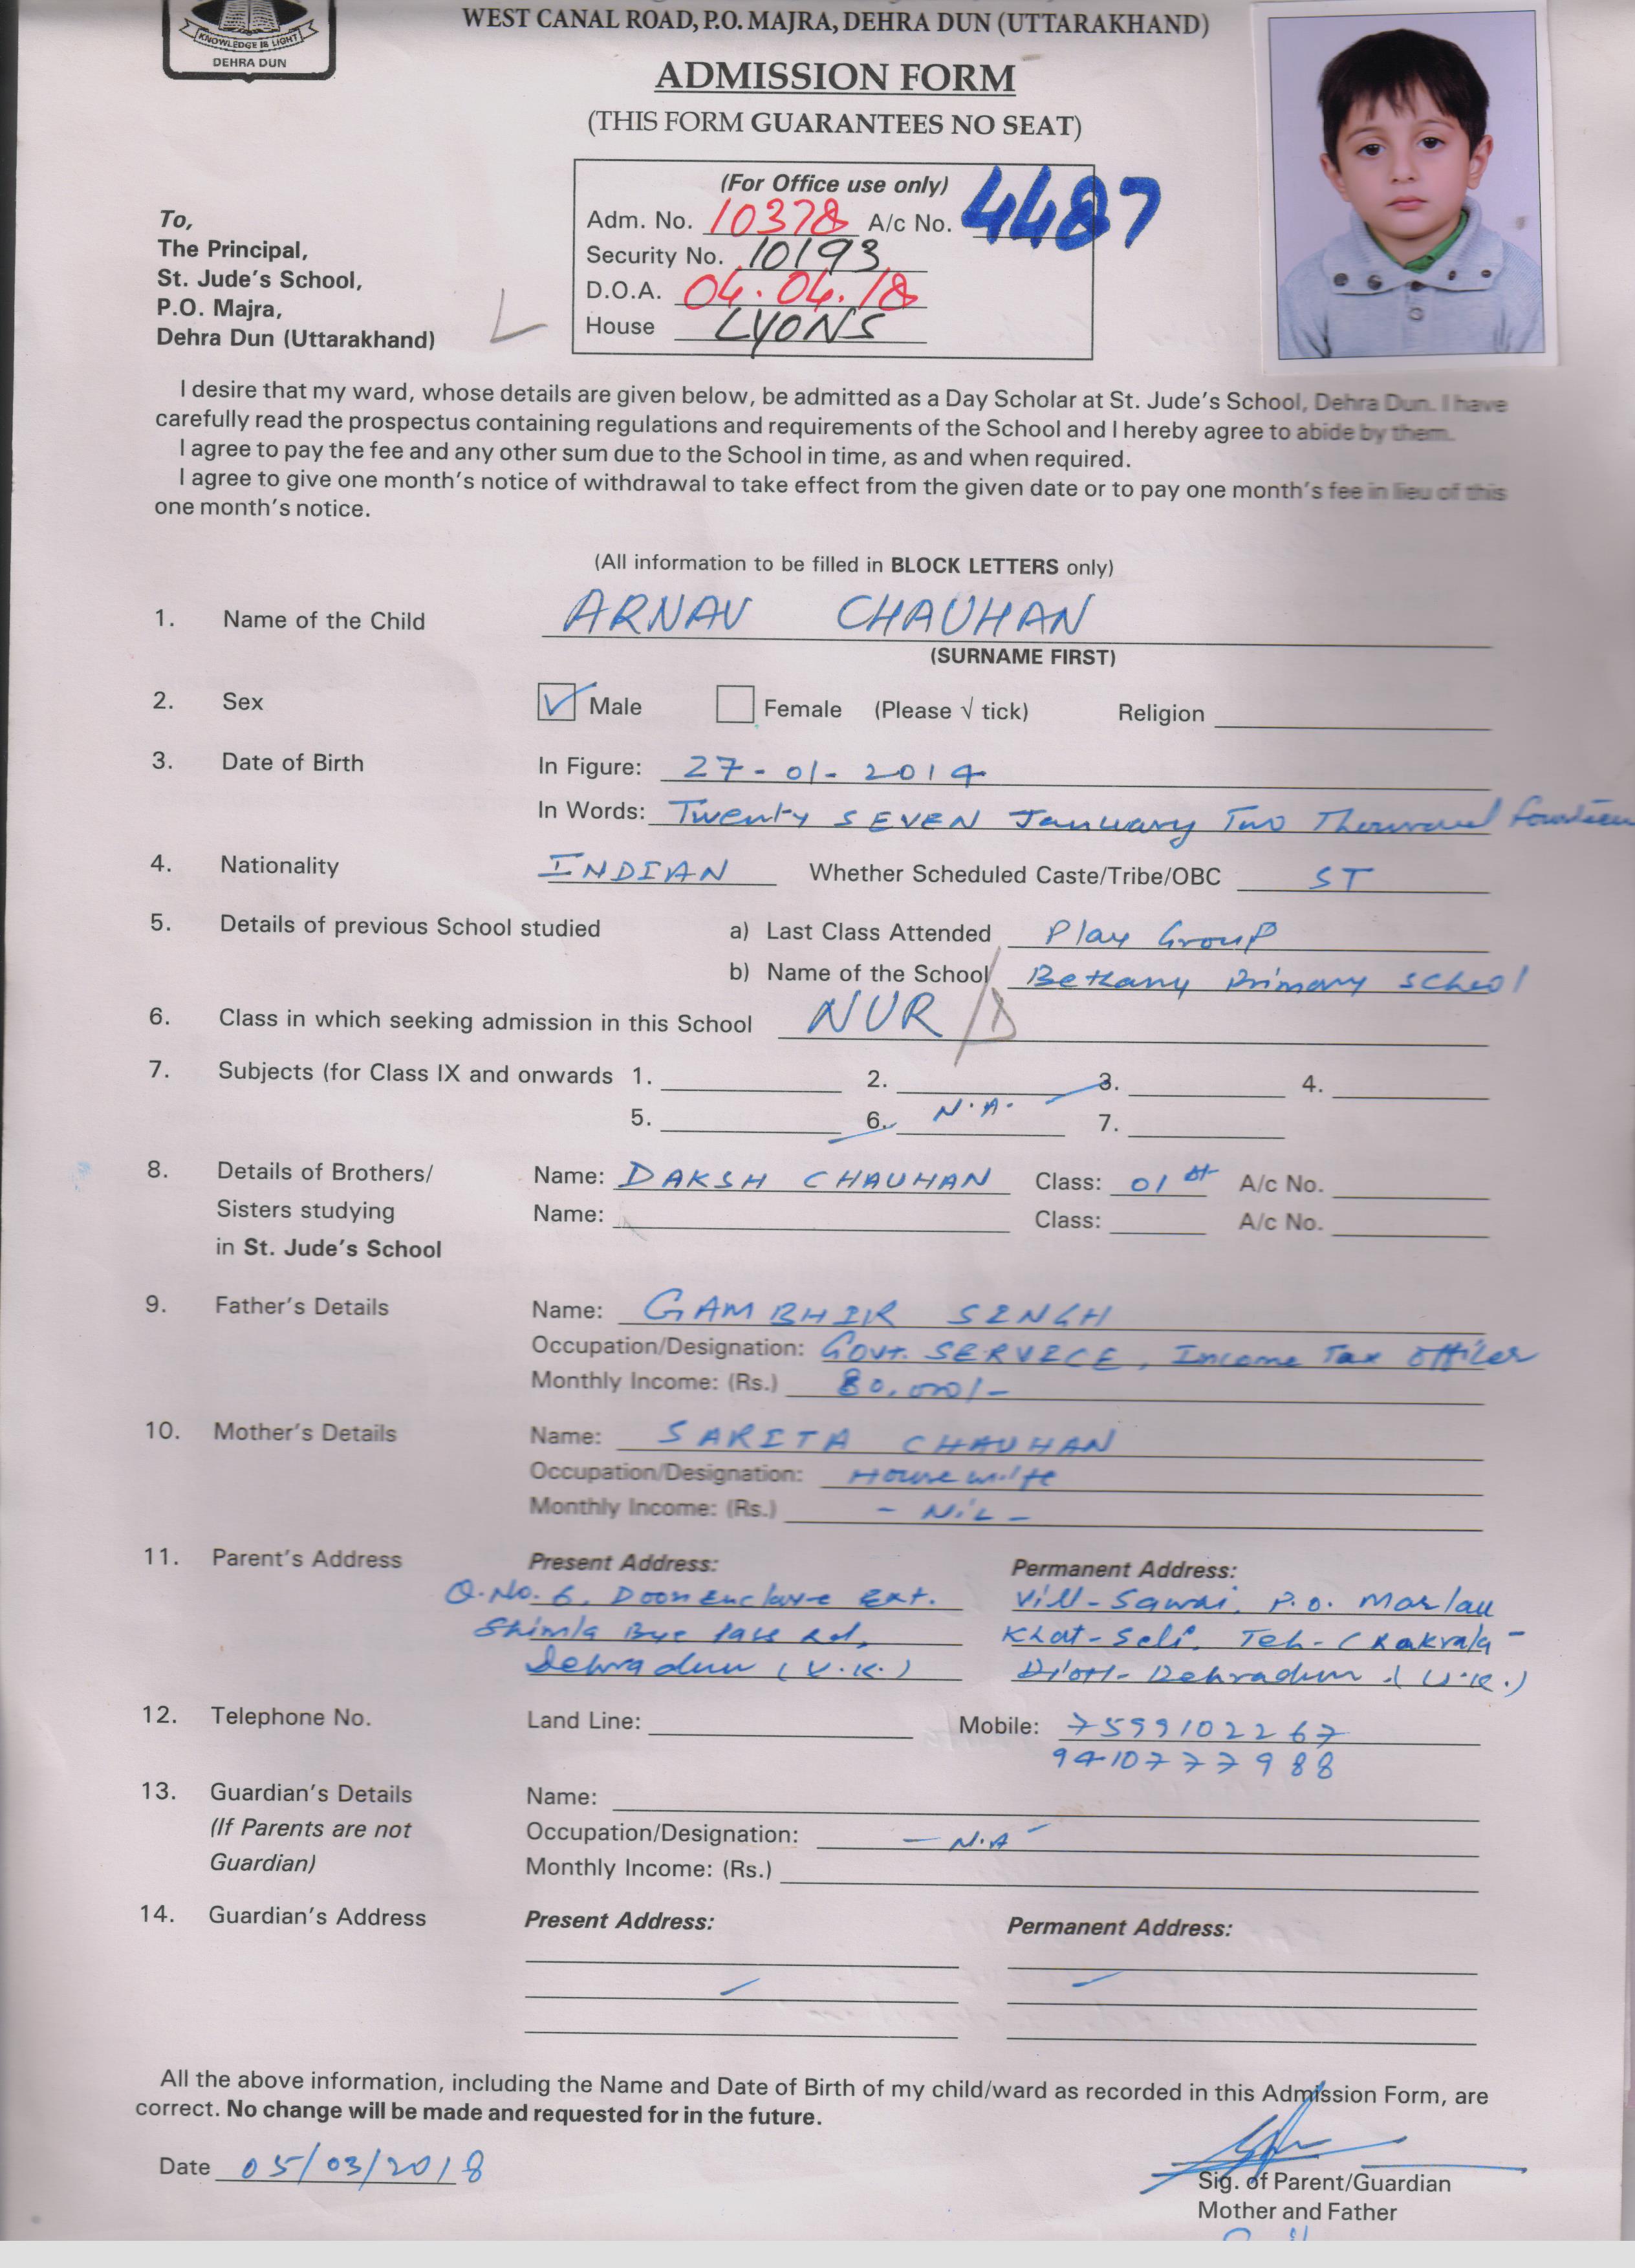 KNOWLEDGE IS LIGHT
DEHRA DUN
WEST CANAL ROAD, P.O. MAJRA, DEHRA DUN (UTTARAKHAND)
ADMISSION FORM
(THIS FORM GUARANTEES NO SEAT)
(For Office use only)
Adm. No. 10378 A/c No. 4487
Security No. 10193
D.O.A. 04.04.18
House LYONS
To,
The Principal,
St. Jude's School,
P.O. Majra,
Dehra Dun (Uttarakhand)
I desire that my ward, whose details are given below, be admitted as a Day Scholar at St. Jude's School, Dehra Dun. I have
carefully read the prospectus containing regulations and requirements of the School and I hereby agree to abide by them.
I agree to pay the fee and any other sum due to the School in time, as and when required.
I agree to give one month's notice of withdrawal to take effect from the given date or to pay one month's fee in lieu of this
one month's notice.
(All information to be filled in BLOCK LETTERS only)
1. Name of the Child ARNAV CHAUHAN
(SURNAME FIRST)
2. Sex Male Female (Please √ tick) Religion
3. Date of Birth In Figure: 27-01-2014
In Words: Twenty SEVEN January Two Thousand fourteen
4. Nationality INDIAN Whether Scheduled Caste/Tribe/OBC ST
5. Details of previous School studied a) Last Class Attended Play Group
b) Name of the School Bethany Primary School
6. Class in which seeking admission in this School NUR/D
7. Subjects (for Class IX and onwards 1. 2. 3. 4.
5. 6. N.A. 7.
8. Details of Brothers/ Name: DAKSH CHAUHAN Class: 01st A/c No.
Sisters studying Name: Class: A/c No.
in St. Jude's School
9. Father's Details Name: GAMBHIR SINGH
Occupation/Designation: Govt. SERVICE, Income Tax Officer
Monthly Income: (Rs.) 80,000/-
10. Mother's Details Name: SARITA CHAUHAN
Occupation/Designation: House wife
Monthly Income: (Rs.) - NIL -
11. Parent's Address Present Address: Permanent Address:
Q.No. 6, Doon Enclave Ext. Vill- Sawai, P.O. Marlau
Shimla Bye Pass Rd, Khat- Seli, Teh- Chakrata-
Dehradun (U.K.) Distt- Dehradun (U.K.)
12. Telephone No. Land Line: Mobile: 7599102267
9410777988
13. Guardian's Details Name:
(If Parents are not Occupation/Designation: - N.A -
Guardian) Monthly Income: (Rs.)
14. Guardian's Address Present Address: Permanent Address:
All the above information, including the Name and Date of Birth of my child/ward as recorded in this Admission Form, are
correct. No change will be made and requested for in the future.
Date 05/03/2018
Sig. of Parent/Guardian
Mother and Father